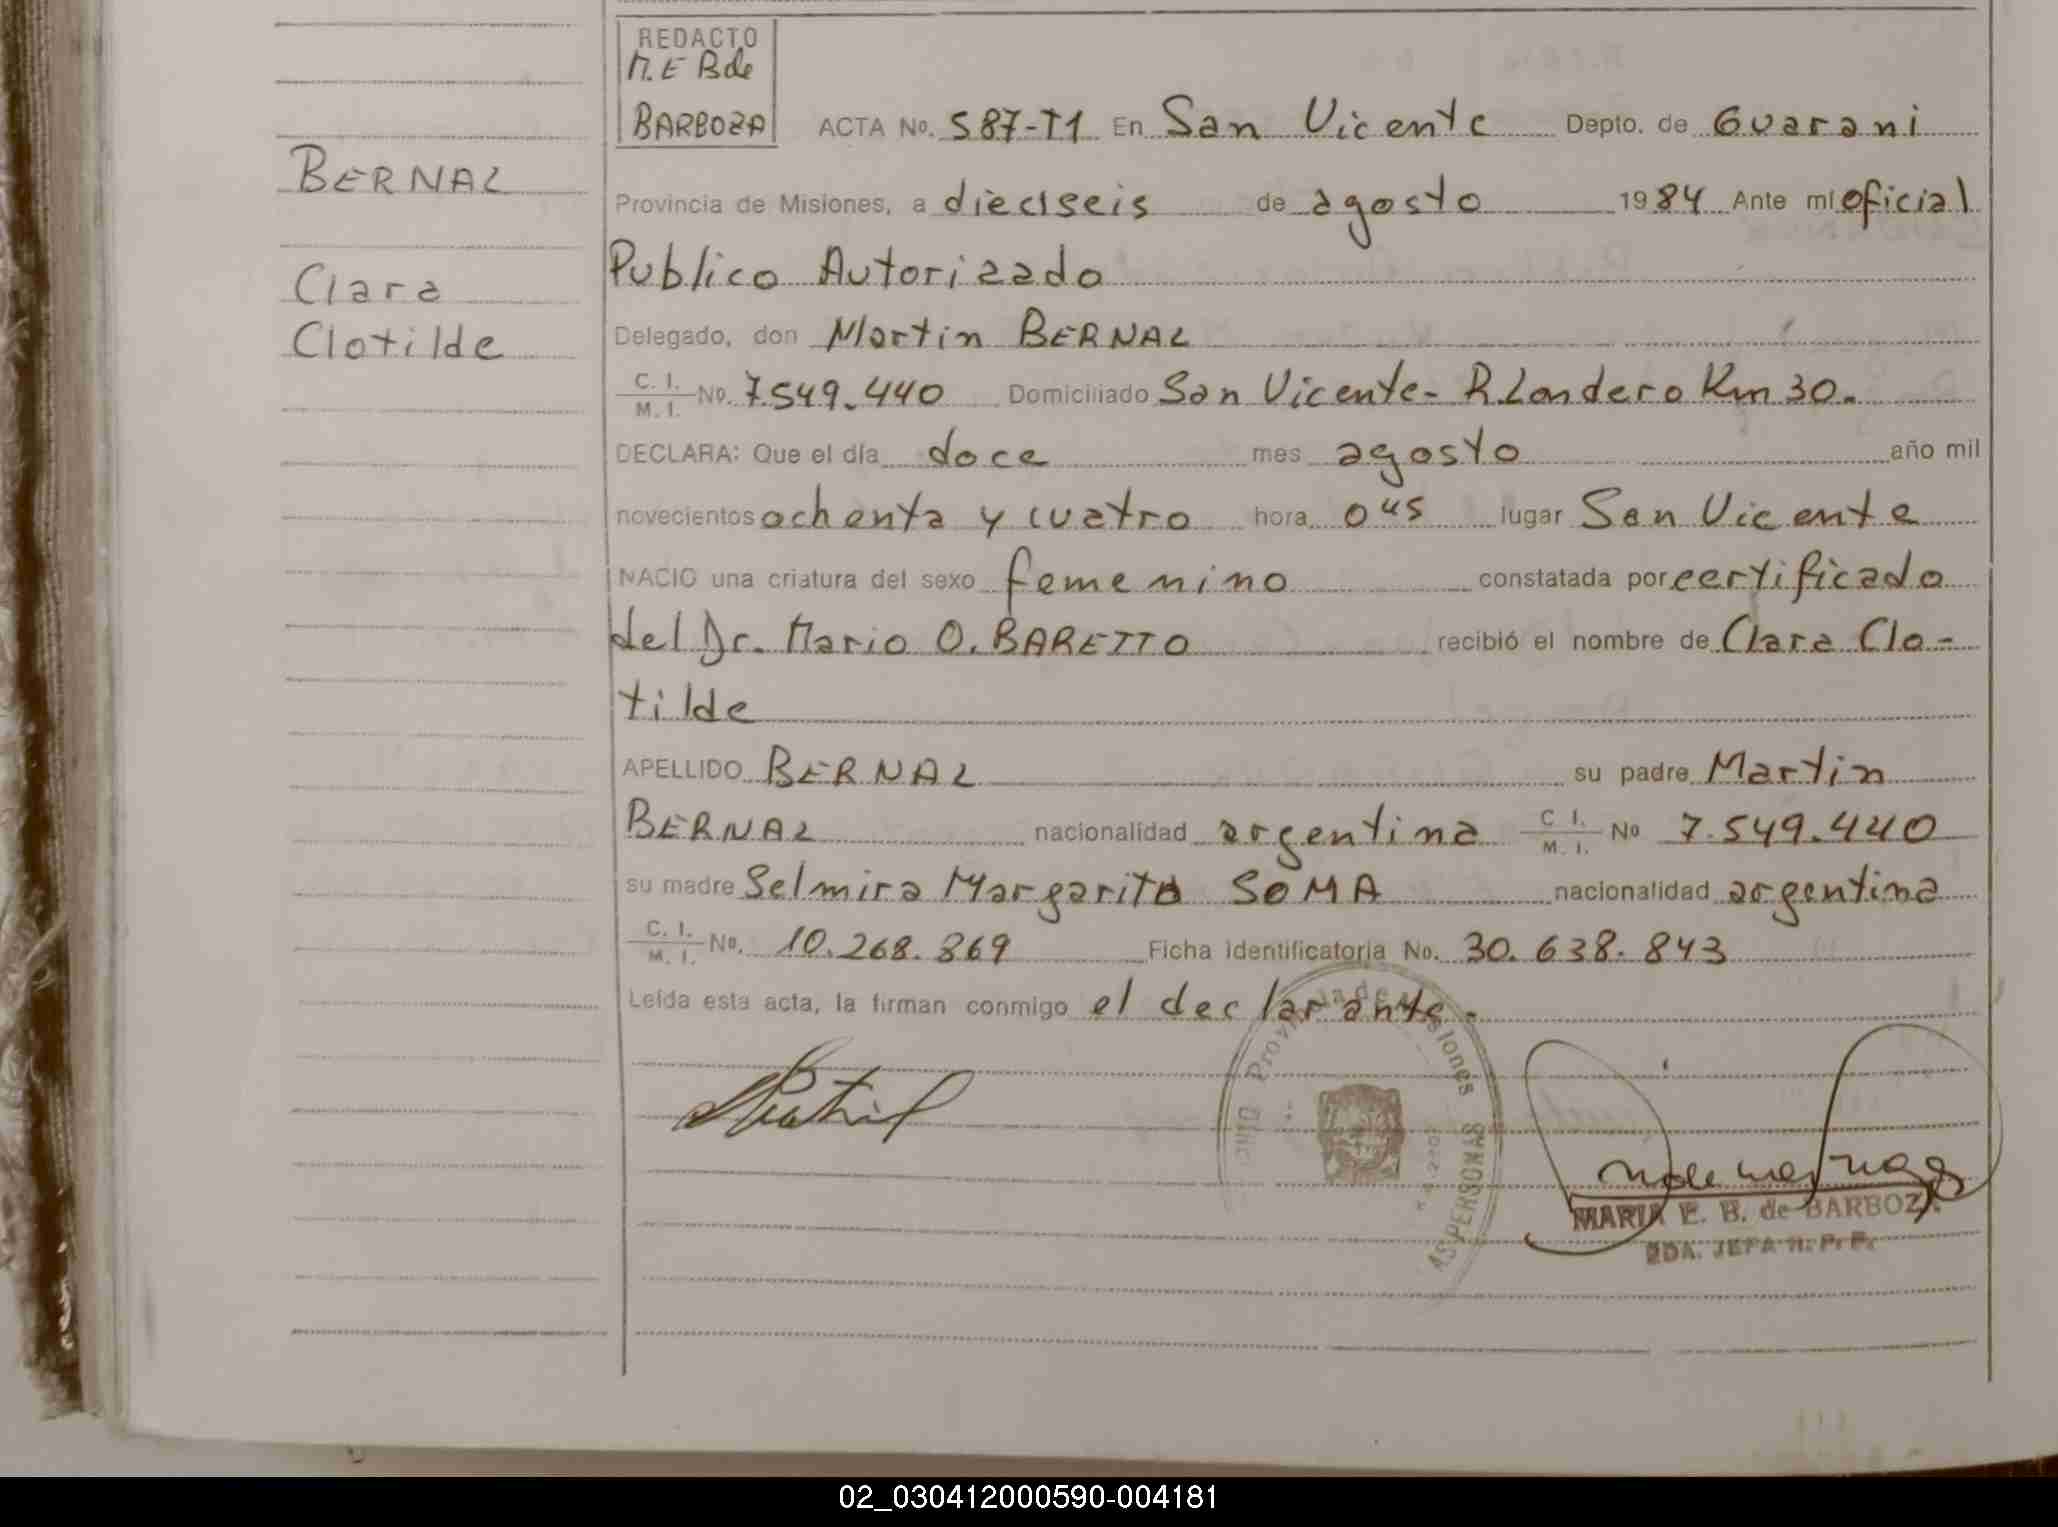 REDACTO
M. E B de
BARBOZA
ACTA No. 587-T1 En San Vicente Depto. de Guarani
BERNAL
Provincia de Misiones, a dieciseis de agosto 1984 Ante mí oficial
Publico Autorizado
Clara
Clotilde
Delegado, don Martin BERNAL
C. I. M. I. No. 7.549.440 Domiciliado San Vicente - R. Londero Km 30.
DECLARA: Que el día doce mes agosto año mil
novecientos ochenta y cuatro hora 0 45 lugar San Vicente
NACIO una criatura del sexo femenino constatada por certificado
del Dr. Mario O. BARETTO recibió el nombre de Clara Clo-
tilde
APELLIDO BERNAL su padre Martin
BERNAL nacionalidad argentina C I. M. I. No 7.549.440
su madre Selmira Margarita SOMA nacionalidad argentina
C. I. M. I. No. 10.268.869 Ficha identificatoria No. 30.638.843
Leída esta acta, la firman conmigo el declarante.
Provincia de Misiones
AS PERSONAS
MARIA E. B. de BARBOZA
2DA. JEFA R. P. P.
02_030412000590-004181